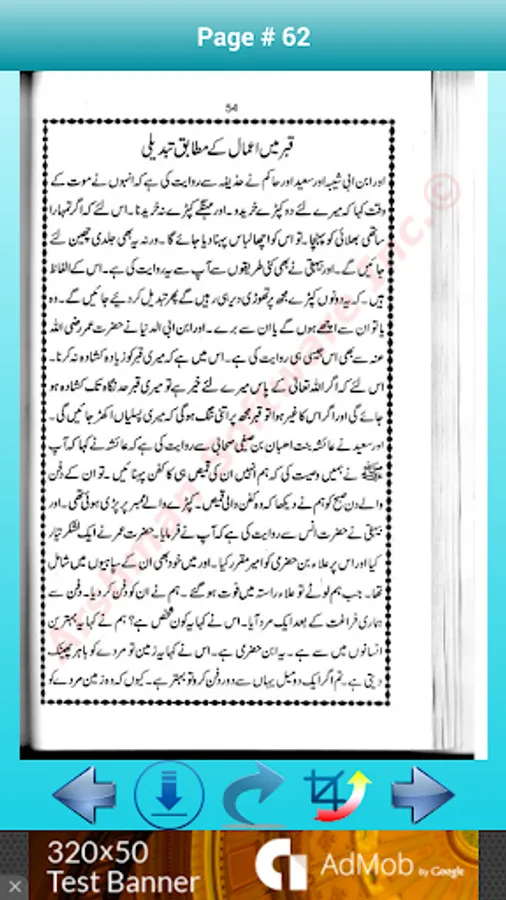 Page # 62
54
قبر میں اعمال کے مطابق تبدیلی
اور ابن ابی شیبہ اور سعید اور حاکم نے حذیفہ سے روایت کی ہے کہ انہوں نے موت کے
وقت کہا کہ میرے لئے دو کپڑے خریدو۔ اور مہنگے کپڑے نہ خریدنا۔ اس لئے کہ اگر تمہارا
ساتھی بھلائی کو پہنچا۔ تو اس کو اچھا لباس پہنا دیا جائے گا۔ ورنہ یہ بھی جلدی چھین لئے
جائیں گے۔ اور بیہقی نے بھی کئی طریقوں سے آپ سے یہ روایت کی ہے۔ اس کے الفاظ
ہیں۔ کہ یہ دونوں کپڑے مجھ پر تھوڑی دیر ہی رہیں گے پھر تبدیل کر دیئے جائیں گے۔ وہ
یا تو ان سے اچھے ہوں گے یا ان سے برے۔ اور ابن ابی الدنیا نے حضرت عمر رضی اللہ
عنہ سے بھی اس جیسی ہی روایت کی ہے۔ اس میں ہے کہ میری قبر کو زیادہ کشادہ نہ کرنا۔
اس لئے کہ اگر اللہ تعالیٰ کے پاس میرے لئے خیر ہے تو میری قبر حد نگاہ تک کشادہ ہو
جائے گی اور اگر اس کا غیر ہوا تو قبر مجھ پر اتنی تنگ ہوگی کہ میری پسلیاں اکھڑ جائیں گی۔
اور سعید نے عائشہ بنت اھبان بن صیفی صحابی سے روایت کی ہے کہ عائشہ نے کہا کہ آپ
ﷺ نے ہمیں وصیت کی کہ ہم انہیں ان کی قمیص ہی کا کفن پہنائیں۔ تو ان کے دفن
والے دن صبح کو ہم نے دیکھا کہ وہ کفن والی قمیص۔ کپڑے والے ممبر پر پڑی ہوئی تھی۔ اور
بیہقی نے حضرت انس سے روایت کی ہے کہ آپ نے فرمایا۔ حضرت عمر نے ایک لشکر تیار
کیا اور اس پر علاء بن حضرمی کو امیر مقرر کیا۔ اور میں خود بھی ان کے سپاہیوں میں شامل
تھا۔ جب ہم لوٹے تو علاء راستہ میں فوت ہو گئے۔ ہم نے ان کو دفن کر دیا۔ دفن سے
ہماری فراغت کے بعد ایک مرد آیا۔ اس نے کہا یہ کون شخص ہے؟ ہم نے کہا یہ بہترین
انسانوں میں سے ہے۔ یہ ابن حضرمی ہے۔ اس نے کہا یہ زمین تو مردے کو باہر پھینک
دیتی ہے۔ تم اگر ایک دو میل یہاں سے دور دفن کرو تو بہتر ہے۔ کیوں کہ وہ زمین مردے کو
Arshman Software Inc.©
320×50
Test Banner
AdMob by Google